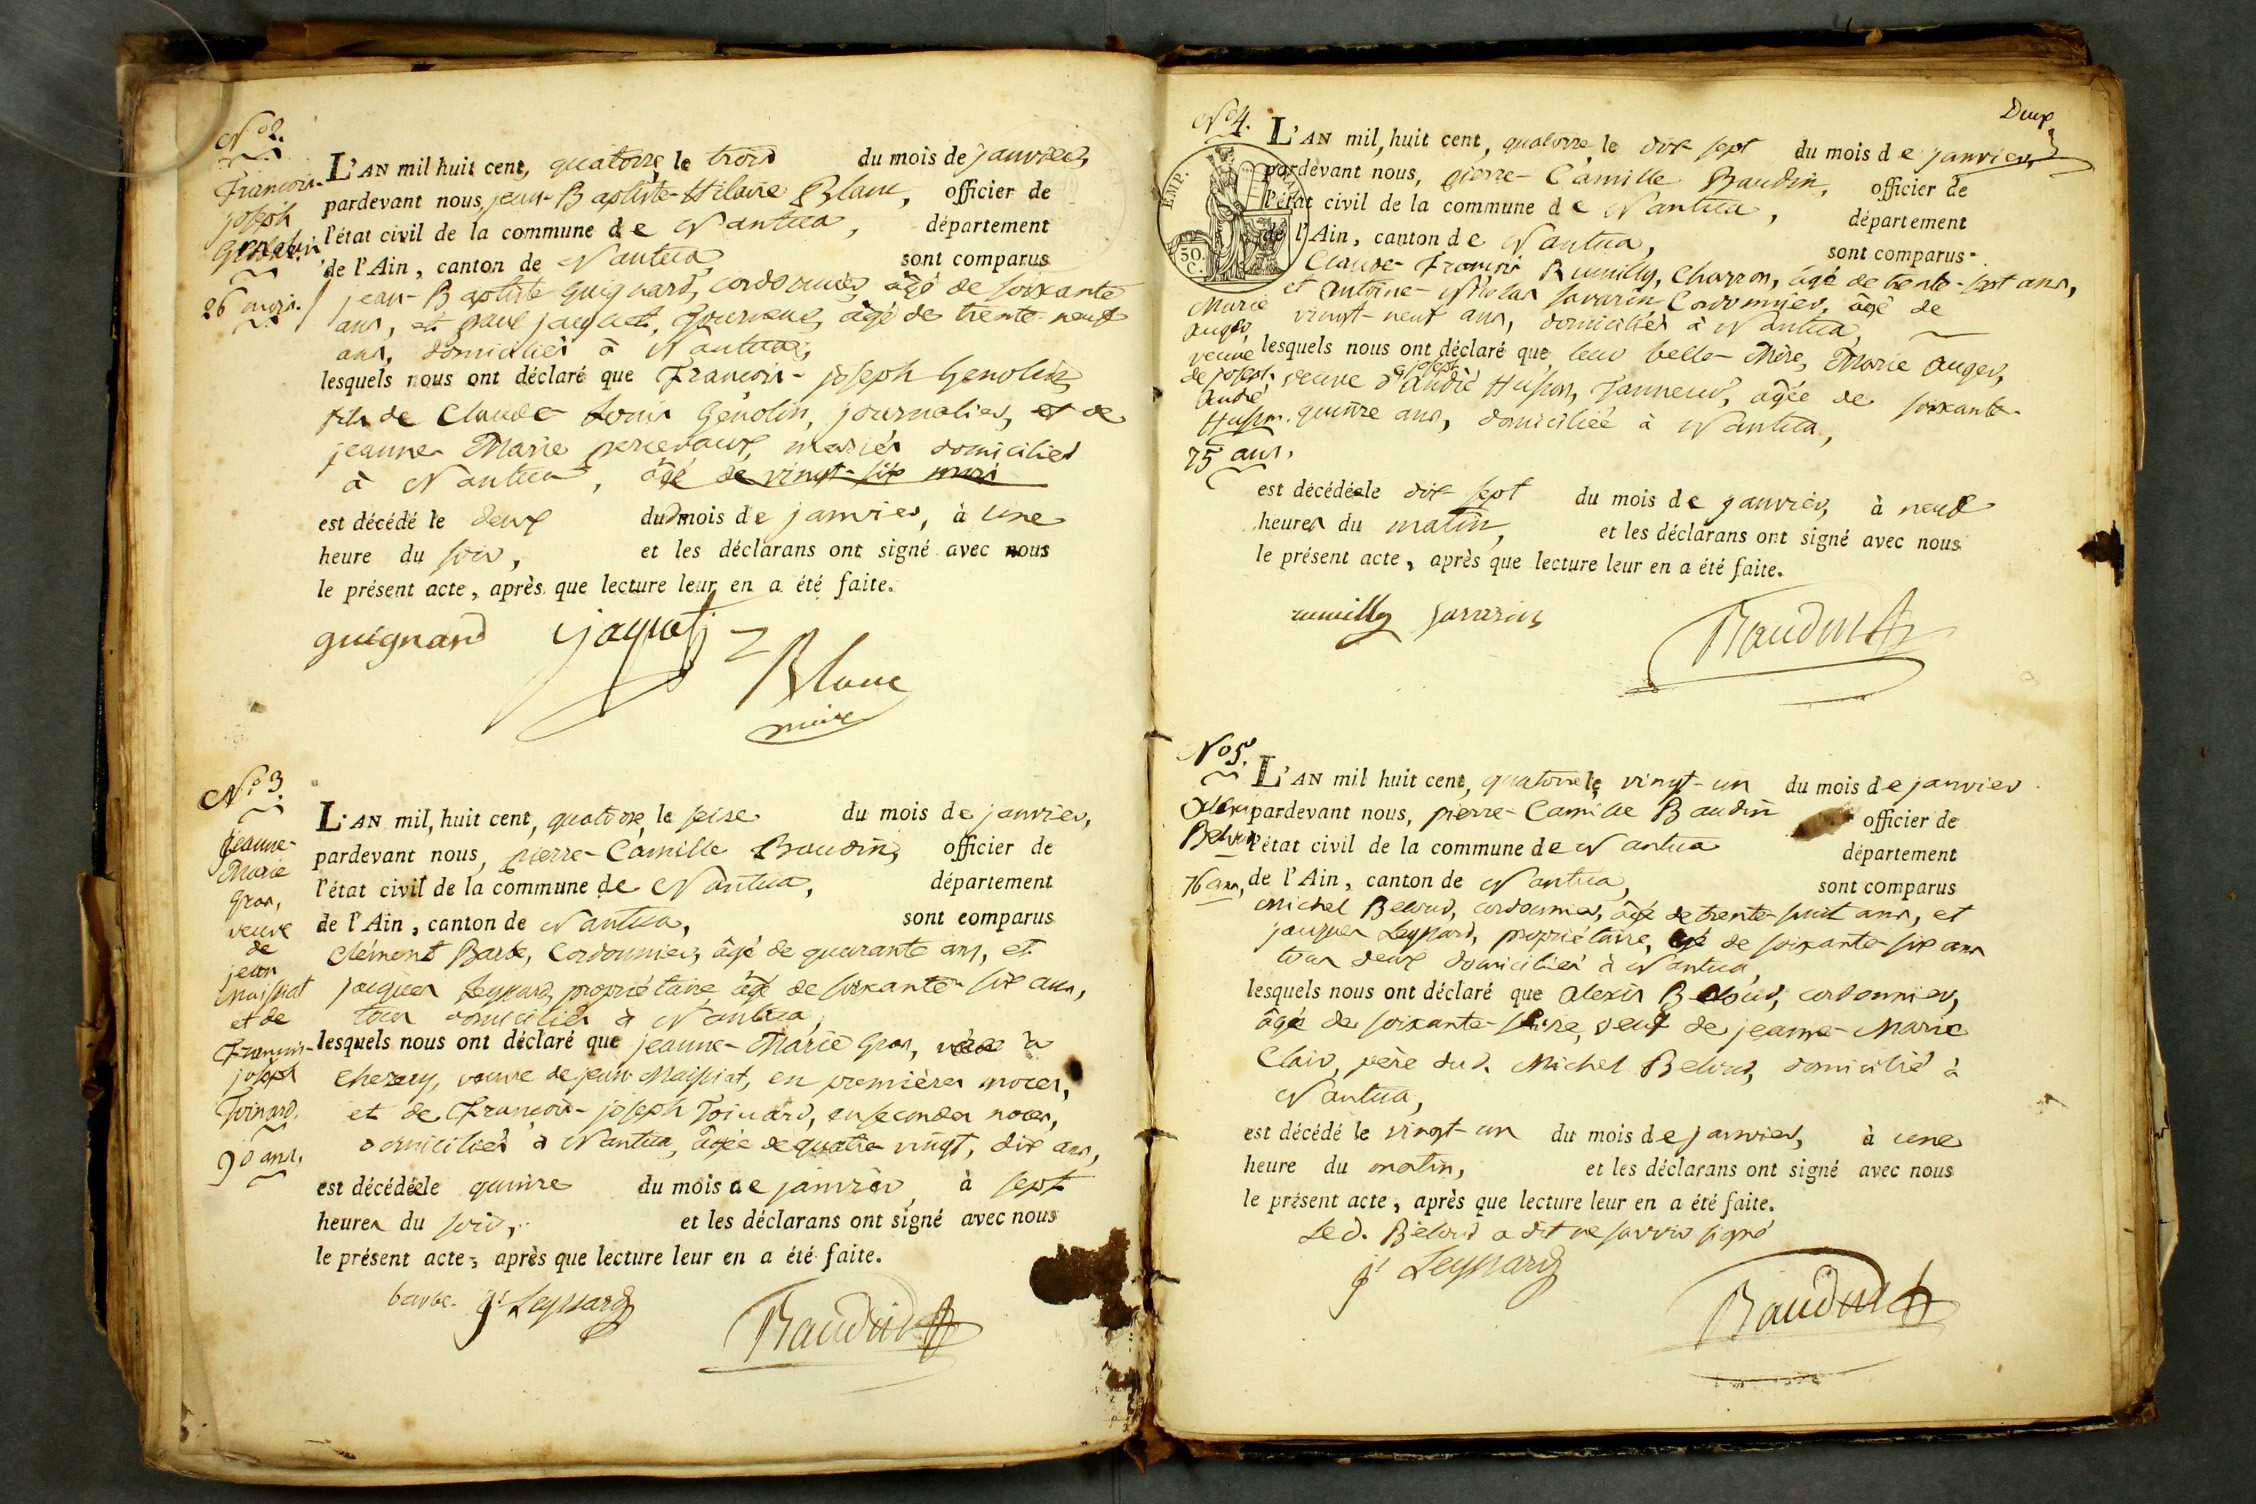 N° 2.
François-
joseph
Genolin
26 mois.
L'AN mil huit cent, quatorze le trois du mois de janvier,
pardevant nous, jean-Baptiste-Hilaire Blanc, officier de
l'état civil de la commune de Nantua, département
de l'Ain, canton de Nantua, sont comparus
jean-Baptiste guignard, cordonnier, âgé de soixante
ans, et paul jacquet, âgé de trente-neuf
ans, domiciliés à Nantua,
lesquels nous ont déclaré que François-joseph Genolin,
fils de Claude-Louis Genolin, journalier, et de
jeanne-Marie percevaux, mariés domiciliés
à Nantua, âgé de vingt-six mois
est décédé le deux dud. mois de janvier, à une
heure du soir, et les déclarans ont signé avec nous
le présent acte, après que lecture leur en a été faite.
guignard jaquet
Blanc
maire
N° 3.
jeanne-
Marie
Gras,
veuve
de
jean
Maissiat
et de
François-
joseph
Toinard.
90 ans.
L'AN mil, huit cent, quatorze, le seise du mois de janvier,
pardevant nous, pierre-Camille Baudin, officier de
l'état civil de la commune de Nantua, département
de l'Ain, canton de Nantua, sont comparus
Clément Barbe, Cordonnier, âgé de quarante ans, et
jacques Leyssard, propriétaire, âgé de soixante-six ans,
tous domiciliés à Nantua,
lesquels nous ont déclaré que jeanne-Marie Gras, née à
Chezery, veuve de jean Maissiat, en premières noces,
et de François-joseph Toinard, en secondes noces,
domiciliée à Nantua, âgée de quatre vingt, dix ans,
est décédée le quinze du mois de janvier, à sept
heures du soir, et les déclarans ont signé avec nous
le présent acte, après que lecture leur en a été faite.
barbe. js Leyssard
Baudin
Deux
N° 4.
EMP.
50.
C.
Marie
auger,
veuve
de joseph
André
Husson.
75 ans.
L'AN mil, huit cent, quatorze, le dix sept du mois de janvier,
pardevant nous, pierre-Camille Baudin, officier de
l'état civil de la commune de Nantua, département
de l'Ain, canton de Nantua, sont comparus
Claude-François Rumilly, Charron, âgé de trente-sept ans,
et Antoine-Nicolas savarin Cordonnier, âgé de
vingt-neuf ans, domiciliés à Nantua,
lesquels nous ont déclaré que leur belle-Mère, Marie auger,
joseph
veuve d'andré Husson, Tanneur, âgée de soixante-
quinze ans, domiciliée à Nantua,
est décédée le dix sept du mois de janvier, à neuf
heures du matin, et les déclarans ont signé avec nous
le présent acte, après que lecture leur en a été faite.
rumilly savarin
Baudin
N° 5.
Alexis
Beloud
76 ans,
L'AN mil huit cent, quatorze le vingt-un du mois de janvier
pardevant nous, pierre-Camille Baudin officier de
l'état civil de la commune de Nantua département
de l'Ain, canton de Nantua, sont comparus
Michel Beloud, cordonnier, âgé de trente-huit ans, et
jacques Leyssard, propriétaire, âgé de soixante-six ans
tous deux domiciliés à Nantua,
lesquels nous ont déclaré que alexis Beloud, cordonnier,
âgé de soixante-seise, veuf de jeanne-Marie
Clair, père dud. Michel Beloud, domicilié à
Nantua,
est décédé le vingt-un du mois de janvier, à une
heure du matin, et les déclarans ont signé avec nous
le présent acte, après que lecture leur en a été faite.
Led. Beloud a dit ne savoir signé
js Leyssard
Baudin